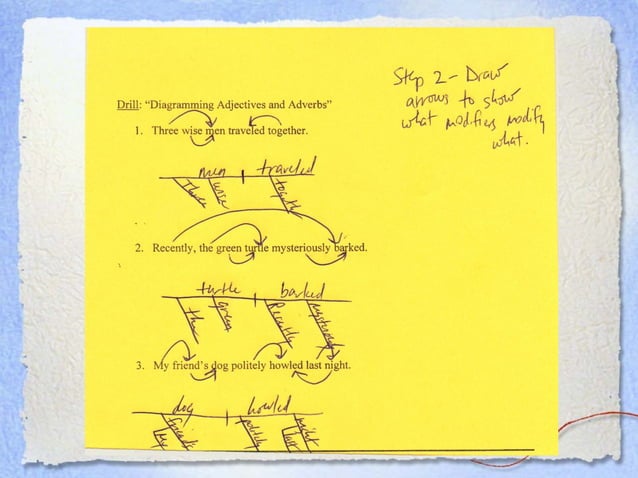 Step 2 - Draw
arrows to show
what modifies modify
what.
Drill: "Diagramming Adjectives and Adverbs"
1. Three wise men traveled together.
men traveled
Three wise together
2. Recently, the green turtle mysteriously barked.
turtle barked
the green Recently mysteriously
3. My friend's dog politely howled last night.
dog howled
My friend's politely last night